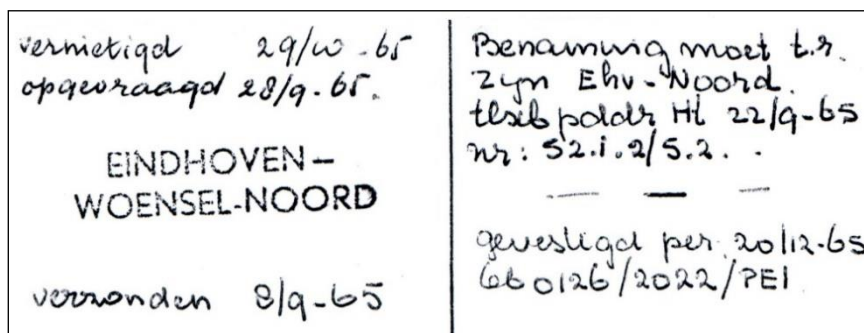 vernietigd 29/10-65
opgevraagd 28/9-65.
EINDHOVEN-
WOENSEL-NOORD
verzonden 8/9-65
Benaming moet t.z.
zyn Ehv-Noord.
pddr Ht 22/9-65
nr: 52.i.2/5.2.
gevestigd per 20/12-65
660126/2022/PEI